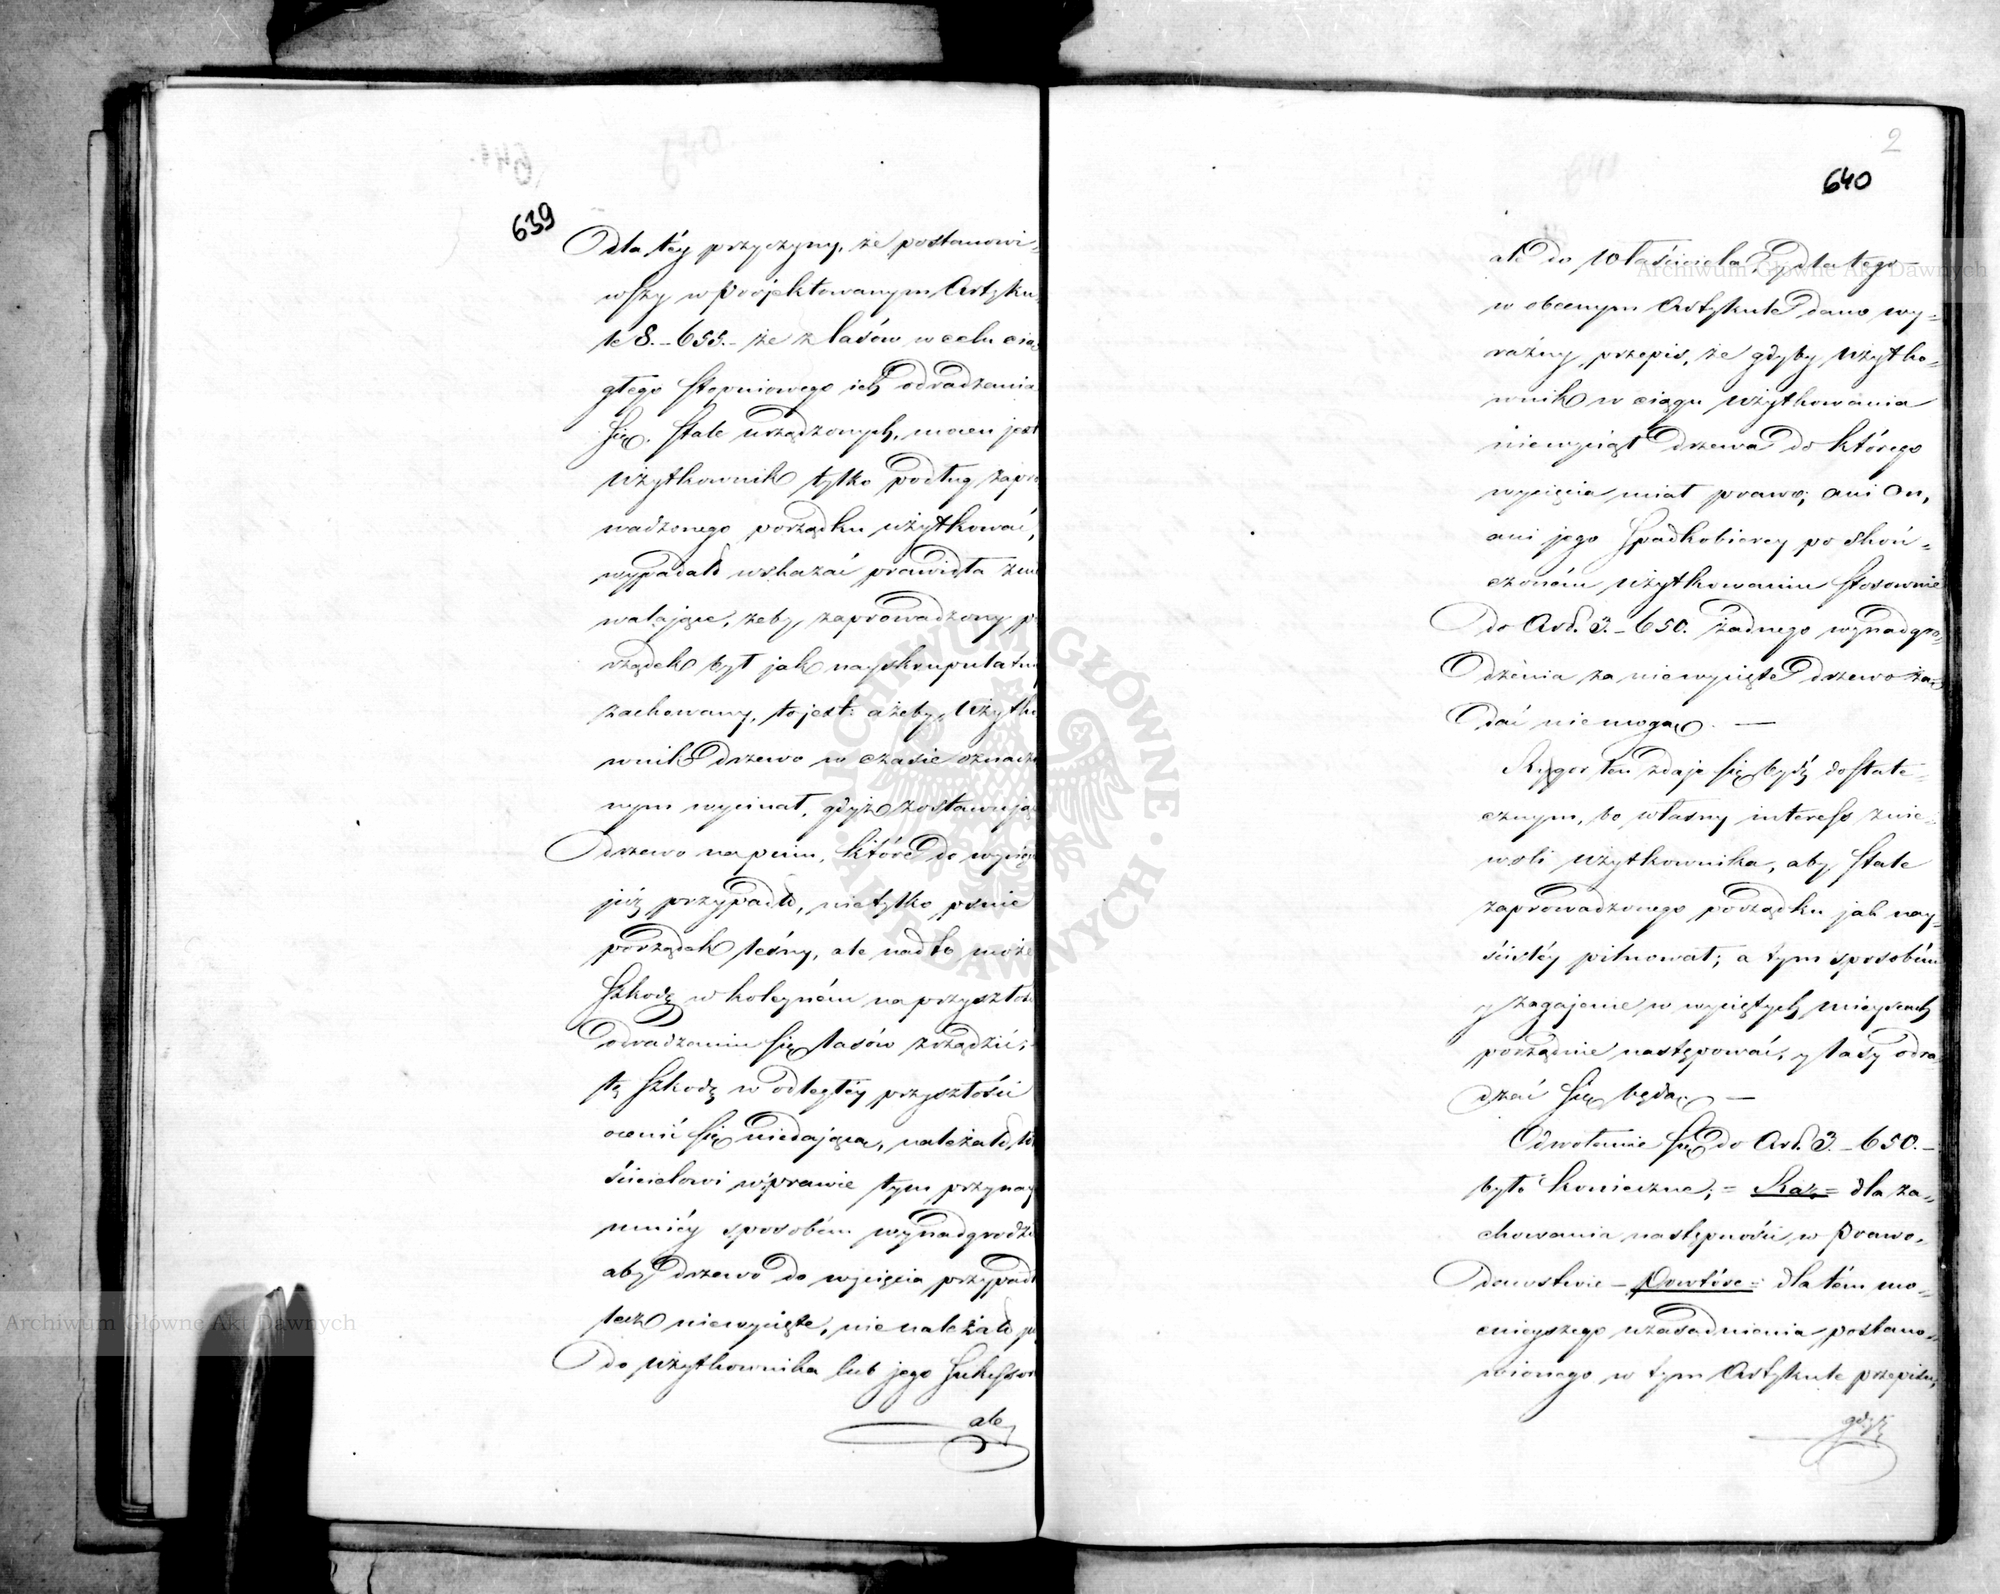 639
Dla téy przyczyny, że postanowi=
wszy w Projektowanym Artyku,
le 8. – 655. – że z lasów w celu cią
głego stopniowego ich odradzania
się stale urządzonych, mocen jest
użytkownik tylko podług zapro
wadzonego porządku użytkować,
wypadało wskazać prawidła zni
walające, żeby zaprowadzony p
rządek był jak nayskrupulatni
zachowany, to jest: ażeby Użytko
wnik drzewo w czasie oznaczo
nym wycinał, gdyż zostawując
drzewo na pniu, które do wycięci
już przypadło, nietylko psuie
porządek leśny, ale nadto może
szkodę w koleyném na przyszłość
odradzaniu się lasów zrządzić;
tę szkodę w odległéy przyszłości
ocenić się niedającą, należało wła
ścicielowi w prawie tym przynay
mniéy sposobém wynadgrodzić
aby drzewo do wycięcia przypadł
lecz niewycięte, nie należało ju
do użytkownika lub jego Sukcessor
ale
2
640
ale do Właściciela; y dla tego
w obecnym Artykule dano wy=
raźny przepis, że gdyby Użytko=
wnik w ciągu użytkowania
niewyciął drzewa do którego
wycięcia miał prawo; ani On,
ani jego Spadkobiercy po skoń=
czoném użytkowaniu stosownie
do Art. 3. – 650. żadnego wynadgro,
dzenia za niewycięte drzewo żą=
dać niemogą. —
Rygor ten zdaje się bydź dostate=
cznym, bo własny interess znie=
woli użytkownika, aby stale
zaprowadzonego porządku jak nay=
ściśléy pilnował; a tym sposobém
y zagajenie w wyciętych mieyscach
porządnie następować, y lasy odra
dzać się będą. —
Odwołanie się do Art. 3. – 650. –
było konieczne; = Raz = dla za=
chowania następności w Prawo=
dawstwie – Powtóre = dla tém mo=
cnieyszego uzasadnienia postano=
wionego w tym Artykule przepisu,
gdyż
Archiwum Główne Akt Dawnych
Archiwum Główne Akt Dawnych
ARCHIWUM GŁÓWNE AKT DAWNYCH